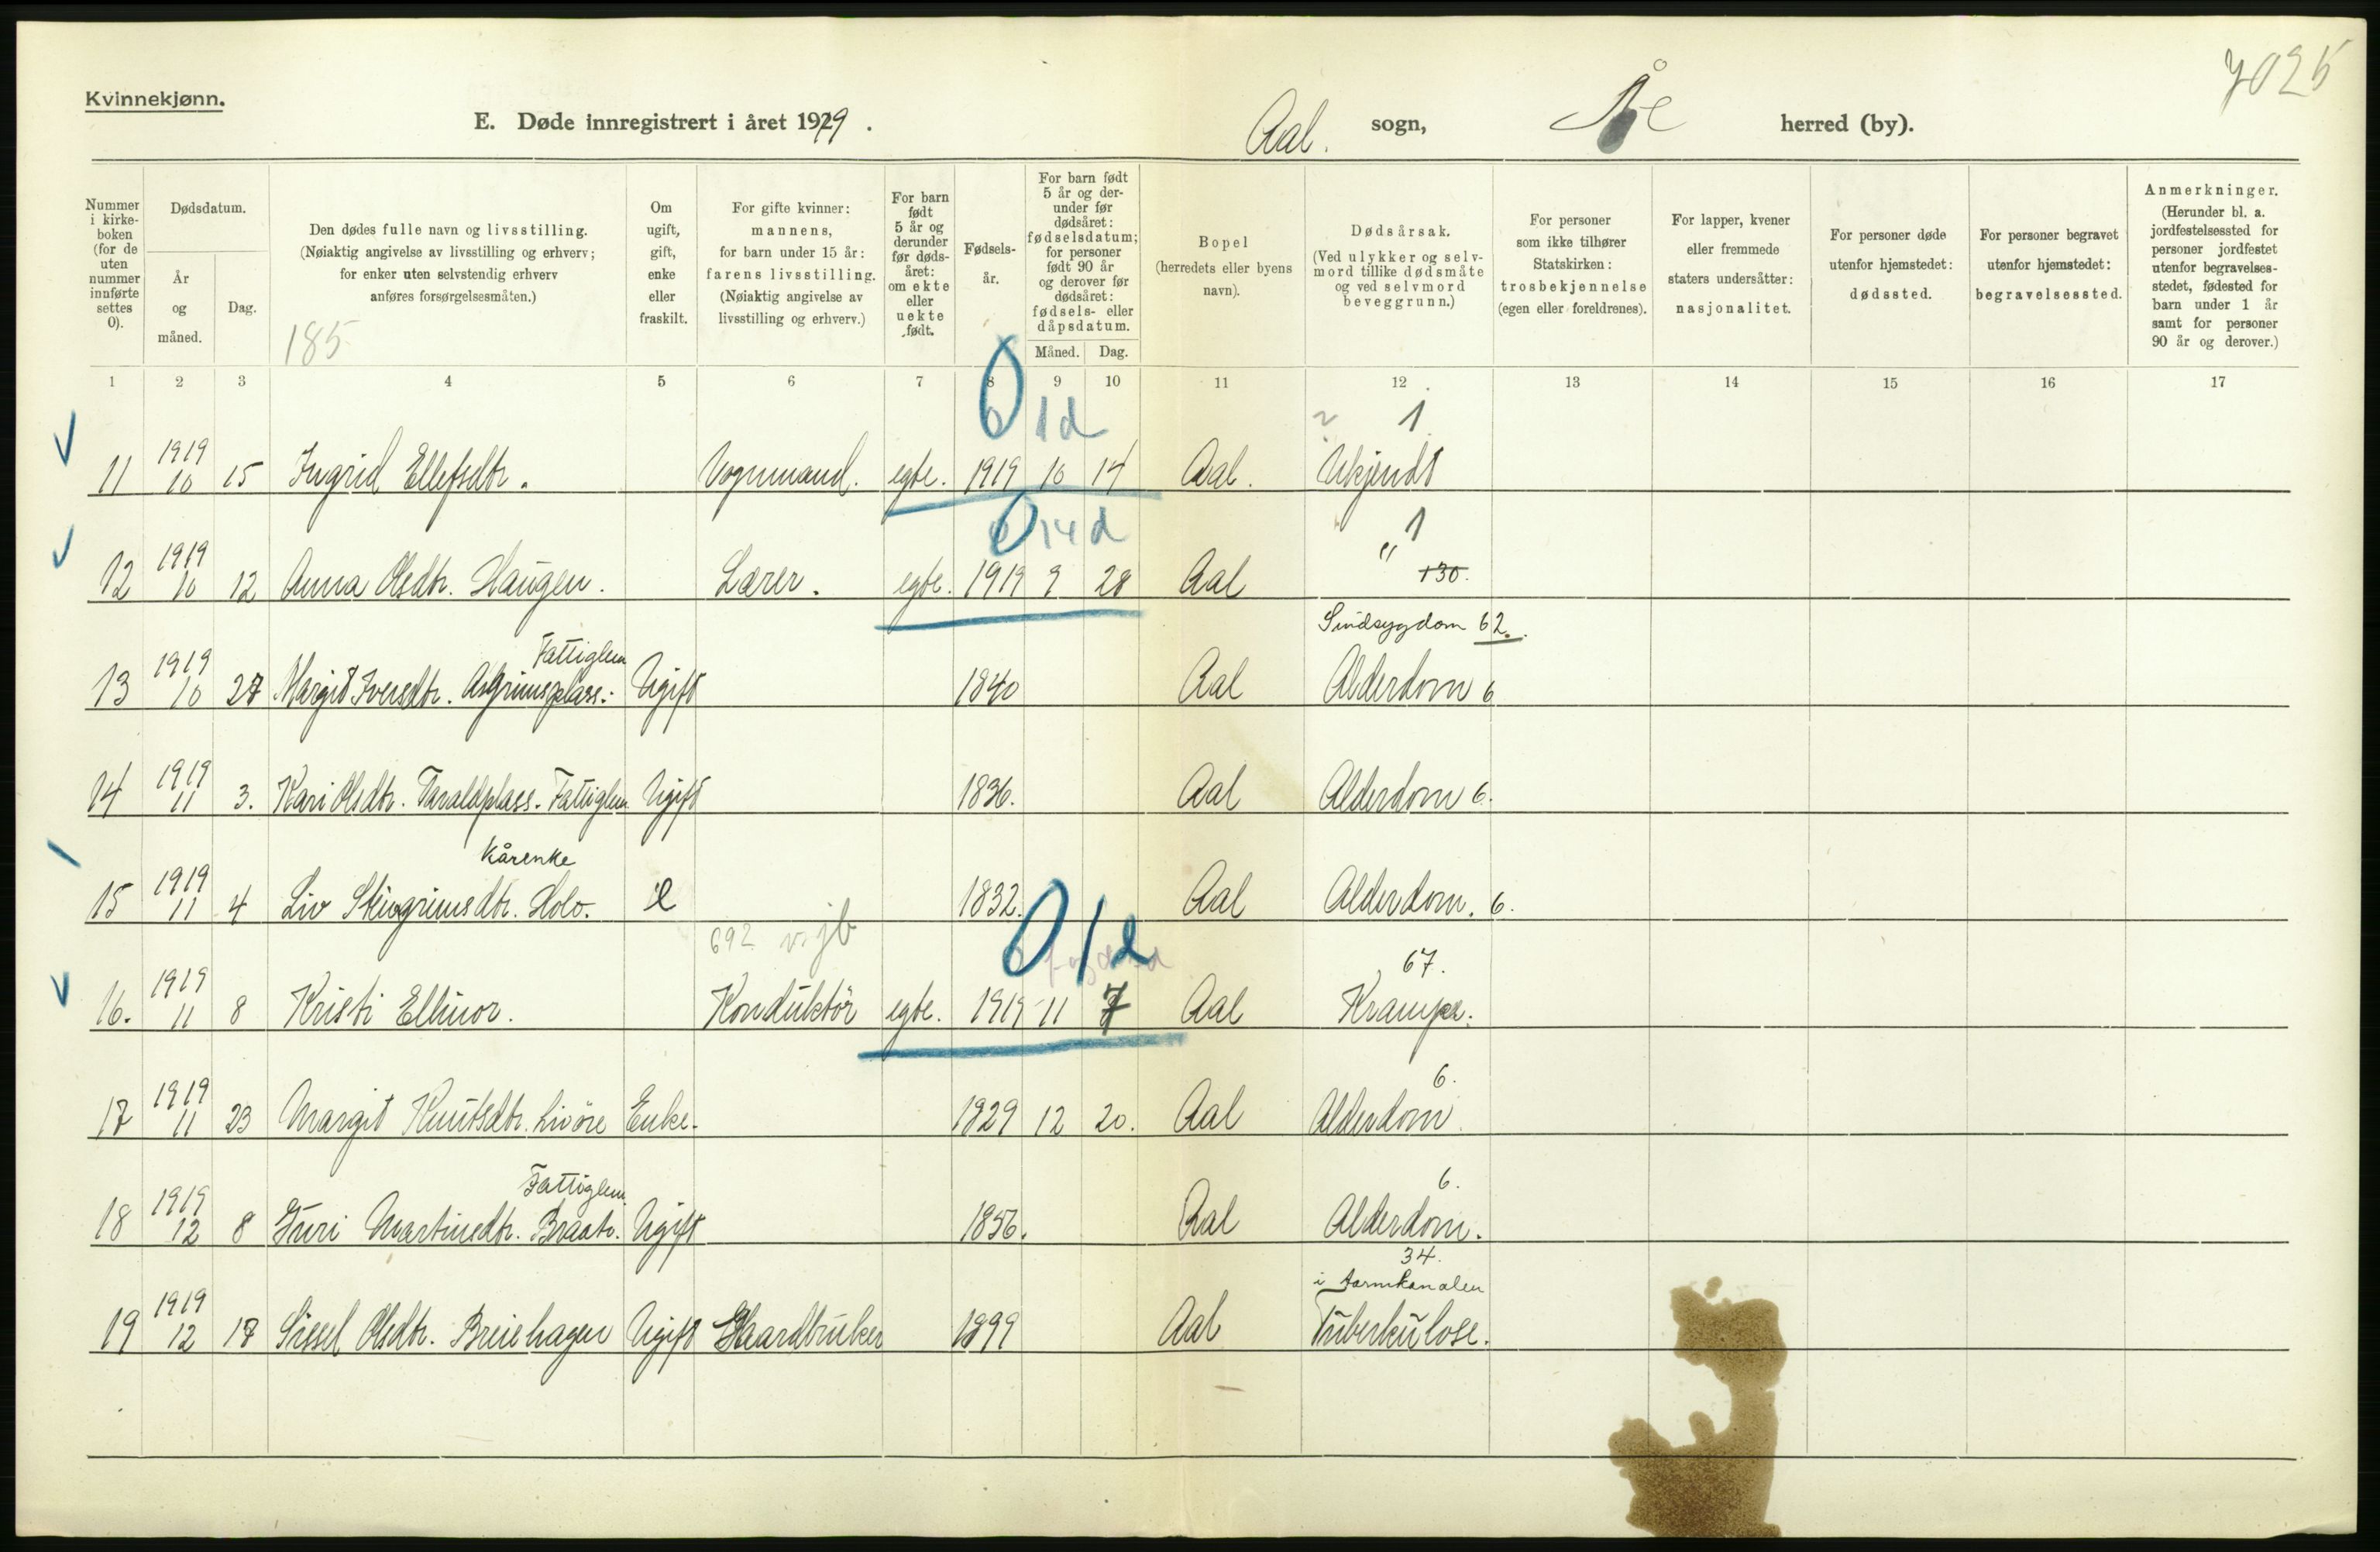 Kvinnekjønn.
7025
E. Døde innregistrert i året 1919. Aal. sogn, Ål herred (by).
Nummer i kirke-boken (for de uten nummer innførte settes 0).
Dødsdatum.
År og måned.
Dag.
Den dødes fulle navn og livsstilling. (Nøiaktig angivelse av livsstilling og erhverv; for enker uten selvstendig erhverv anføres forsørgelsesmåten.)
185
Om ugift, gift, enke eller fraskilt.
For gifte kvinner: mannens, for barn under 15 år: farens livsstilling. (Nøiaktig angivelse av livsstilling og erhverv.)
For barn født 5 år og derunder før døds-året: om ekte eller uekte født.
Fødsels-år.
For barn født 5 år og der-under før dødsåret: fødselsdatum; for personer født 90 år og derover før dødsåret: fødsels- eller dåpsdatum.
Måned. Dag.
Bopel (herredets eller byens navn).
Dødsårsak. (Ved ulykker og selv-mord tillike dødsmåte og ved selvmord beveggrunn.)
For personer som ikke tilhører Statskirken: trosbekjennelse (egen eller foreldrenes).
For lapper, kvener eller fremmede staters undersåtter: nasjonalitet.
For personer døde utenfor hjemstedet: dødssted.
For personer begravet utenfor hjemstedet: begravelsessted.
Anmerkninger. (Herunder bl. a. jordfestelsessted for personer jordfestet utenfor begravelses-stedet, fødested for barn under 1 år samt for personer 90 år og derover.)
1 2 3 4 5 6 7 8 9 10 11 12 13 14 15 16 17
0 1d 1
11 1919 10 15 Ingrid Ellefsdtr. Vognmand. egte. 1919 10 14 Aal. Ukjendt
0 14d 1
12 1919 10 12 Anna Olsdtr. Haugen. Lærer. egte. 1919 9 28 Aal " 130.
Sindsygdom 62.
Fattiglem
13 1919 10 27 Margit Iversdtr. Asgrimsplass. Ugift 1840 Aal Alderdom 6
14 1919 11 3. Kari Olsdtr. Taraldplass. Fattiglem Ugift 1836. Aal Alderdom 6.
Kårenke
15 1919 11 4 Liv Steingrimsdtr. Holo. e 1832. Aal Alderdom. 6.
692 0 1d 67.
16. 1919 11 8 Kristi Ellinor. Konduktör egte. 1919 11 7 Aal Krampe.
6.
17 1919 11 23 Margit Knutsdtr. Livöre Enke. 1829 12 20. Aal Alderdom
Fattiglem 6.
18 1919 12 8 Guri Martinsdtr. Braata. Ugift 1856. Aal Alderdom.
34.
i tarmkanalen
19 1919 12 17 Sissel Olsdtr. Breiehagen Ugift Gaardbruker 1899 Aal Tuberkulose.